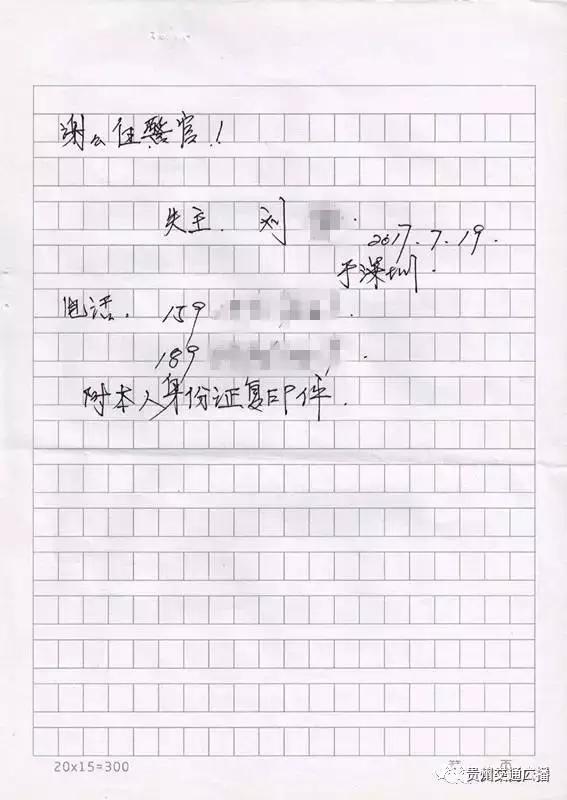 谢谢任警官！
失主. 刘
2017.7.19.
于深圳.
电话. 159
189
附本人身份证复印件.
20x15=300
第 页
贵州交通广播